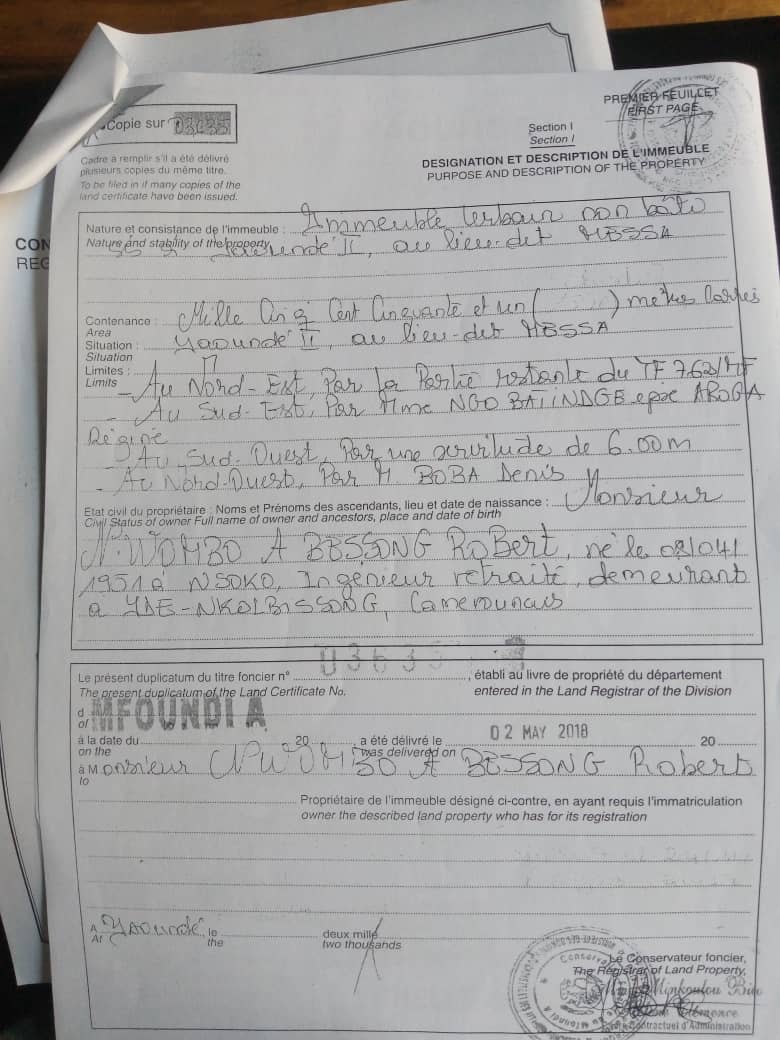 Copie sur 03635
PREMIER FEUILLET
FIRST PAGE
Cadre à remplir s'il a été délivré
plusieurs copies du même titre.
To be filed in if many copies of the
land certificate have been issued.
Section I
Section I
DESIGNATION ET DESCRIPTION DE L'IMMEUBLE
PURPOSE AND DESCRIPTION OF THE PROPERTY
CON
REG
Nature et consistance de l'immeuble : Immeuble urbain non bâti
Nature and stability of the property sis à Yaoundé II, au lieu-dit MBSSA
Contenance : Mille Cinq Cent Cinquante et un ( ) mètres Carrés
Area
Situation : Yaoundé II, au lieu-dit MBSSA
Situation
Limites :
Limits
- Au Nord-Est, Par la Partie restante du TF 763/MF
- Au Sud-Est, Par Mme NGO épse AROGA
Régine
- Au Sud-Ouest, Par une servitude de 6.00m
- Au Nord-Ouest, Par M. BOBA Denis
Etat civil du propriétaire : Noms et Prénoms des ascendants, lieu et date de naissance : Monsieur
Civil Status of owner Full name of owner and ancestors, place and date of birth
A BESSONG RoBert, né le 04/
1951 à NSOKO, Ingénieur retraité, demeurant
à YDE-NKOLBISSONG, Camerounais
Le présent duplicatum du titre foncier n° 03635 , établi au livre de propriété du département
The present duplicatum of the Land Certificate No. entered in the Land Registrar of the Division
d MFOUNDI A
of
à la date du 20 , a été délivré le 02 MAY 2018 20
on the was delivered on
à Monsieur A BESSONG Robert
to
Propriétaire de l'immeuble désigné ci-contre, en ayant requis l'immatriculation
owner the described land property who has for its registration
A Yaoundé le deux mille
At the two thousands
Le Conservateur foncier,
The Registrar of Land Property,
Minkoulou
Clémence
Contractuel d'Administration